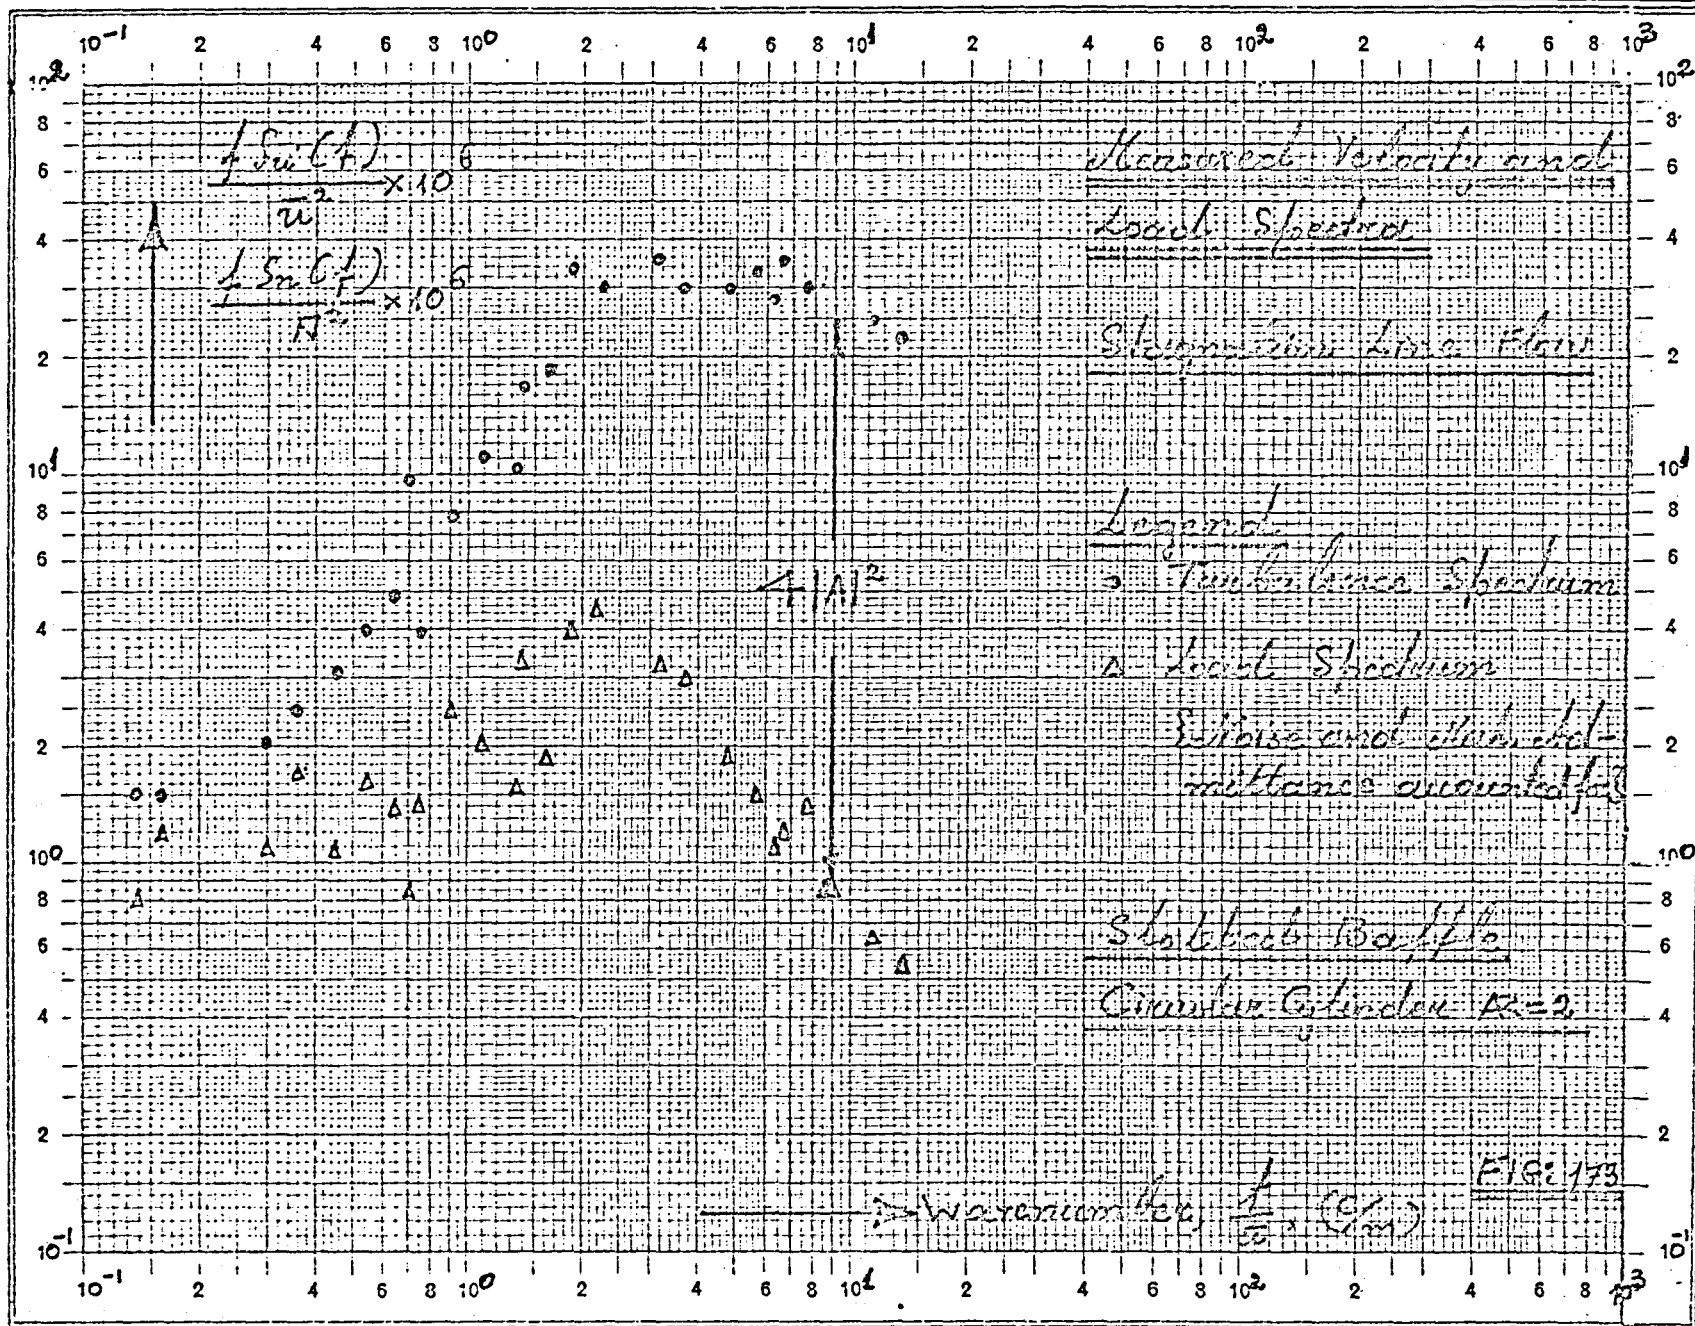 10⁻¹ 2 4 6 8 10⁰ 2 4 6 8 10¹ 2 4 6 8 10² 2 4 6 8 10³
10² 8 6 4 2 10¹ 8 6 4 2 10⁰ 8 6 4 2 10⁻¹
f Su(f) / ū² ×10⁶
f Sn(f) / A² ×10⁶
Measured Velocity and
Load Spectra
Stagnation Line Flow
4|A|²
Legend
Turbulence Spectrum
Δ Load Spectrum
mittance accounted for
Slotted Baffle
Circular Cylinder AR=2
FIG: 173
Wavenumber, f/ū, (c/m)
10² 8 6 4 2 10¹ 8 6 4 2 10⁰ 8 6 4 2 10⁻¹
10⁻¹ 2 4 6 8 10⁰ 2 4 6 8 10¹ 2 4 6 8 10² 2 4 6 8 10³